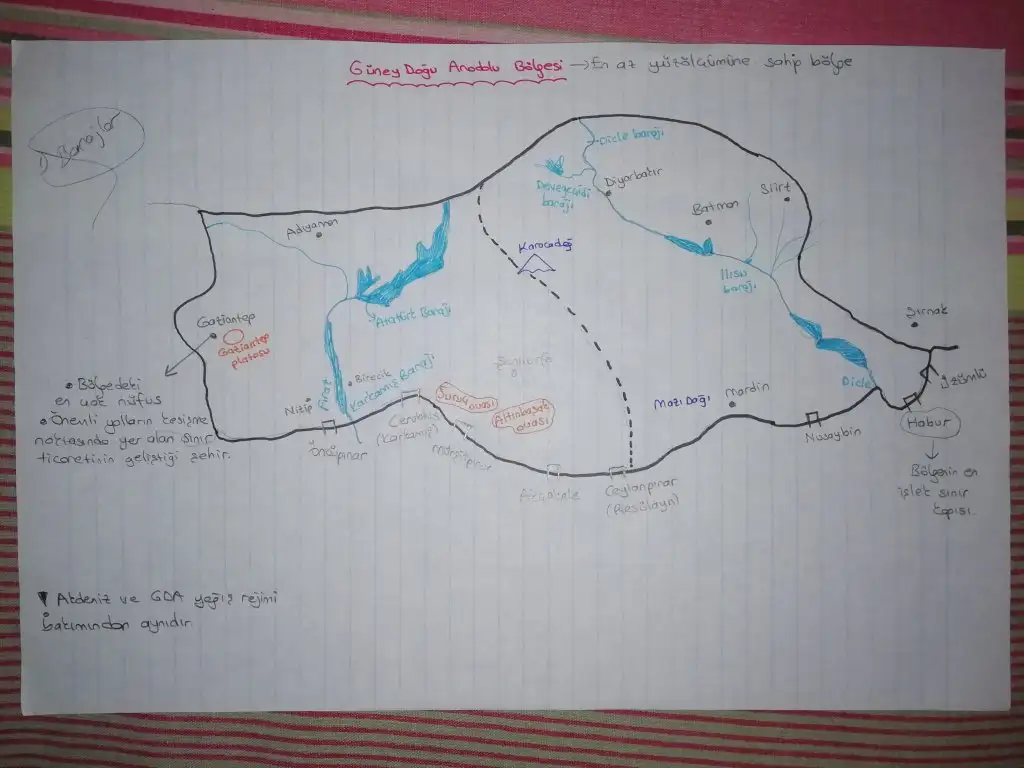 Güney Doğu Anadolu Bölgesi → En az yüzölçümüne sahip bölge
Barajlar
Dicle barajı
Devegeçidi
barajı
Diyarbakır
Siirt
Batman
Adıyaman
Karacadağ
Ilısu
barajı
Atatürk Barajı
Gaziantep
Gaziantep
platosu
Şırnak
Şanlıurfa
• Bölgedeki
en çok nüfus
• Önemli yolların kesişme
noktasında yer alan sınır
ticaretinin geliştiği şehir.
Fırat
Birecik
Karkamış Barajı
Nizip
Suruç
ovası
Altınbaşak
ovası
Mazı Dağı
Mardin
Dicle
Üzümlü
Habur
Bölgenin en
işlek sınır
kapısı.
Öncüpınar
(Karkamış)
Nusaybin
Akçakale
Ceylanpınar
(Resulayn)
Akdeniz ve GDA yağış rejimi
bakımından aynıdır.